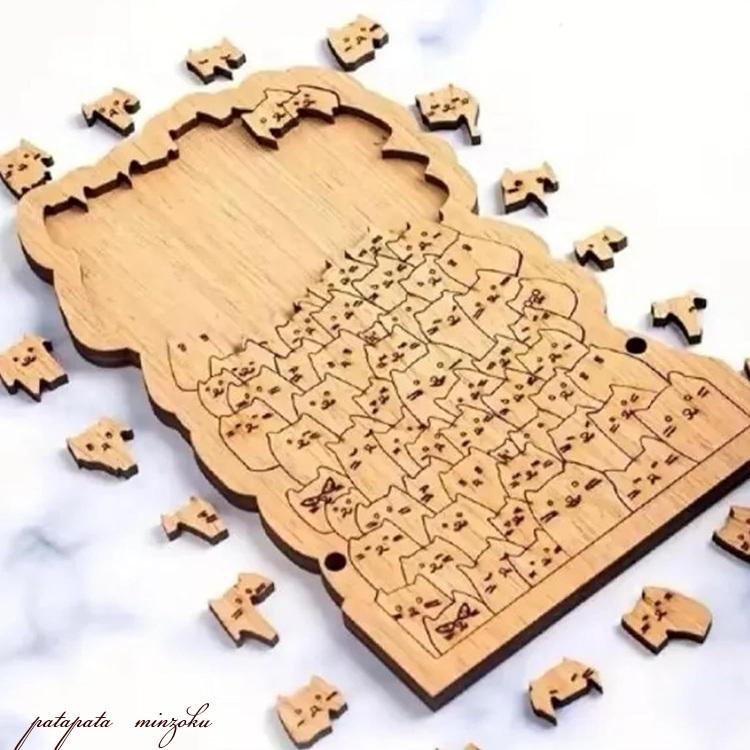 patapata minzoku